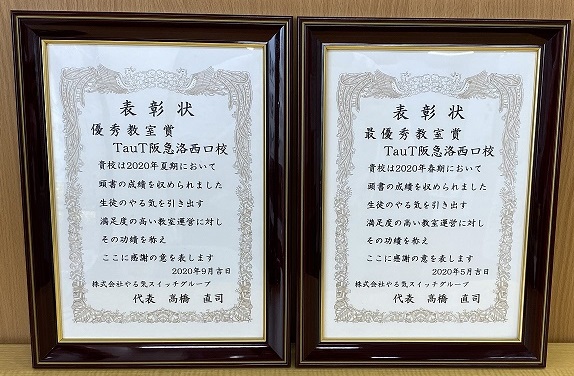 表彰状
優秀教室賞
TauT阪急洛西口校
貴校は2020年夏期において
頭書の成績を収められました
生徒のやる気を引き出す
満足度の高い教室運営に対し
その功績を称え
ここに感謝の意を表します
2020年9月吉日
株式会社やる気スイッチグループ
代表 高橋 直司
表彰状
最優秀教室賞
TauT阪急洛西口校
貴校は2020年春期において
頭書の成績を収められました
生徒のやる気を引き出す
満足度の高い教室運営に対し
その功績を称え
ここに感謝の意を表します
2020年5月吉日
株式会社やる気スイッチグループ
代表 高橋 直司